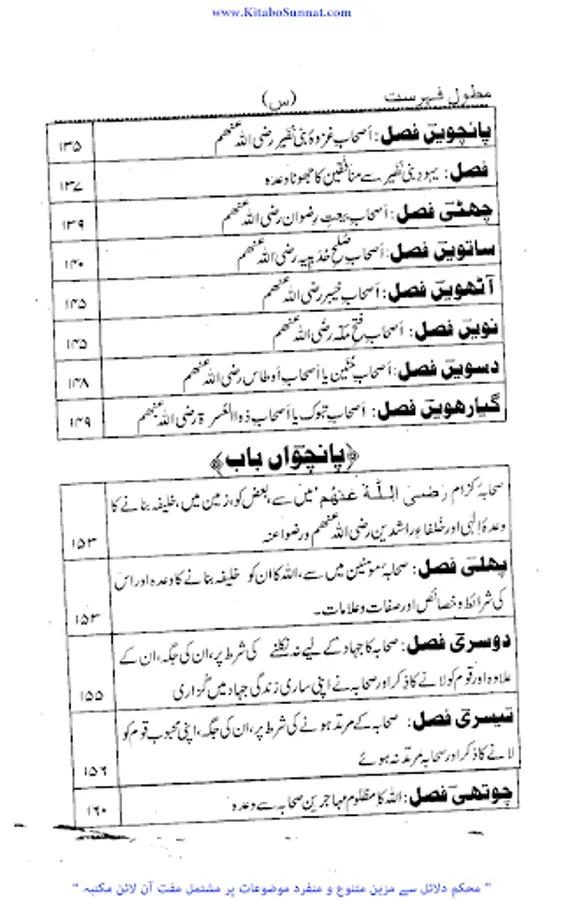 www.KitaboSunnat.com
مطول فہرست (س)
پانچویں فصل: اصحاب غزوۂ بنی نضیر رضی اللہ عنھم ۱۳۵
فصل: یہود بنی نضیر سے منافقین کا جھوٹا وعدہ ۱۳۷
چھٹی فصل: اصحاب بیعتِ رضوان رضی اللہ عنھم ۱۳۹
ساتویں فصل: اصحاب صلح حدیبیہ رضی اللہ عنھم ۱۴۰
آٹھویں فصل: اصحاب خیبر رضی اللہ عنھم ۱۴۵
نویں فصل: اصحاب فتح مکہ رضی اللہ عنھم ۱۴۵
دسویں فصل: اصحاب حنین یا اصحاب أوطاس رضی اللہ عنھم ۱۴۸
گیارھویں فصل: اصحاب تبوک یا أصحاب ذو العُسرۃ رضی اللہ عنھم ۱۴۹
﴿پانچواں باب﴾
صحابہ کرام رَضِیَ اللّٰہُ عَنْھُمْ میں سے، بعض کو، زمین میں، خلیفہ بنانے کا
وعدۂ الٰہی اور خلفاءِ راشدین رضی اللہ عنھم ورضوا عنہ ۱۵۳
پھلی فصل: صحابہ مومنین میں سے، اللہ کا ان کو خلیفہ بنانے کا وعدہ اور اس
کی شرائط و خصائص اور صفات و علامات۔ ۱۵۳
دوسری فصل: صحابہ کا جہاد کے لیے نہ نکلنے کی شرط پر، ان کی جگہ، ان کے
علاوہ اور قوم کو لانے کا ذکر اور صحابہ نے اپنی ساری زندگی جہاد میں گزاری ۱۵۵
تیسری فصل: صحابہ کے مرتد ہونے کی شرط پر، ان کی جگہ، اپنی محبوب قوم کو
لانے کا ذکر اور صحابہ مرتد نہ ہوئے ۱۵۶
چوتھی فصل: اللہ کا مظلوم مہاجرین صحابہ سے وعدہ ۱۶۰
" محکم دلائل سے مزین متنوع و منفرد موضوعات پر مشتمل مفت آن لائن مکتبہ "